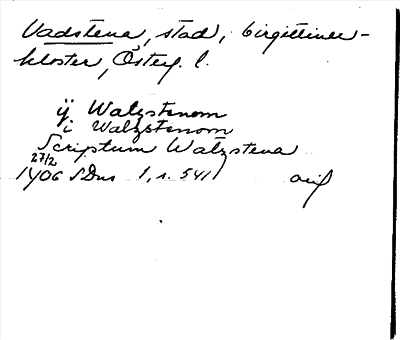 Vadstena, stad, birgittiner-
kloster, Österg. l.
ÿ Watzstenom
i Watzstenom
Scriptum Watzstena
27/2
1406 SDns 1, s. 541 orig